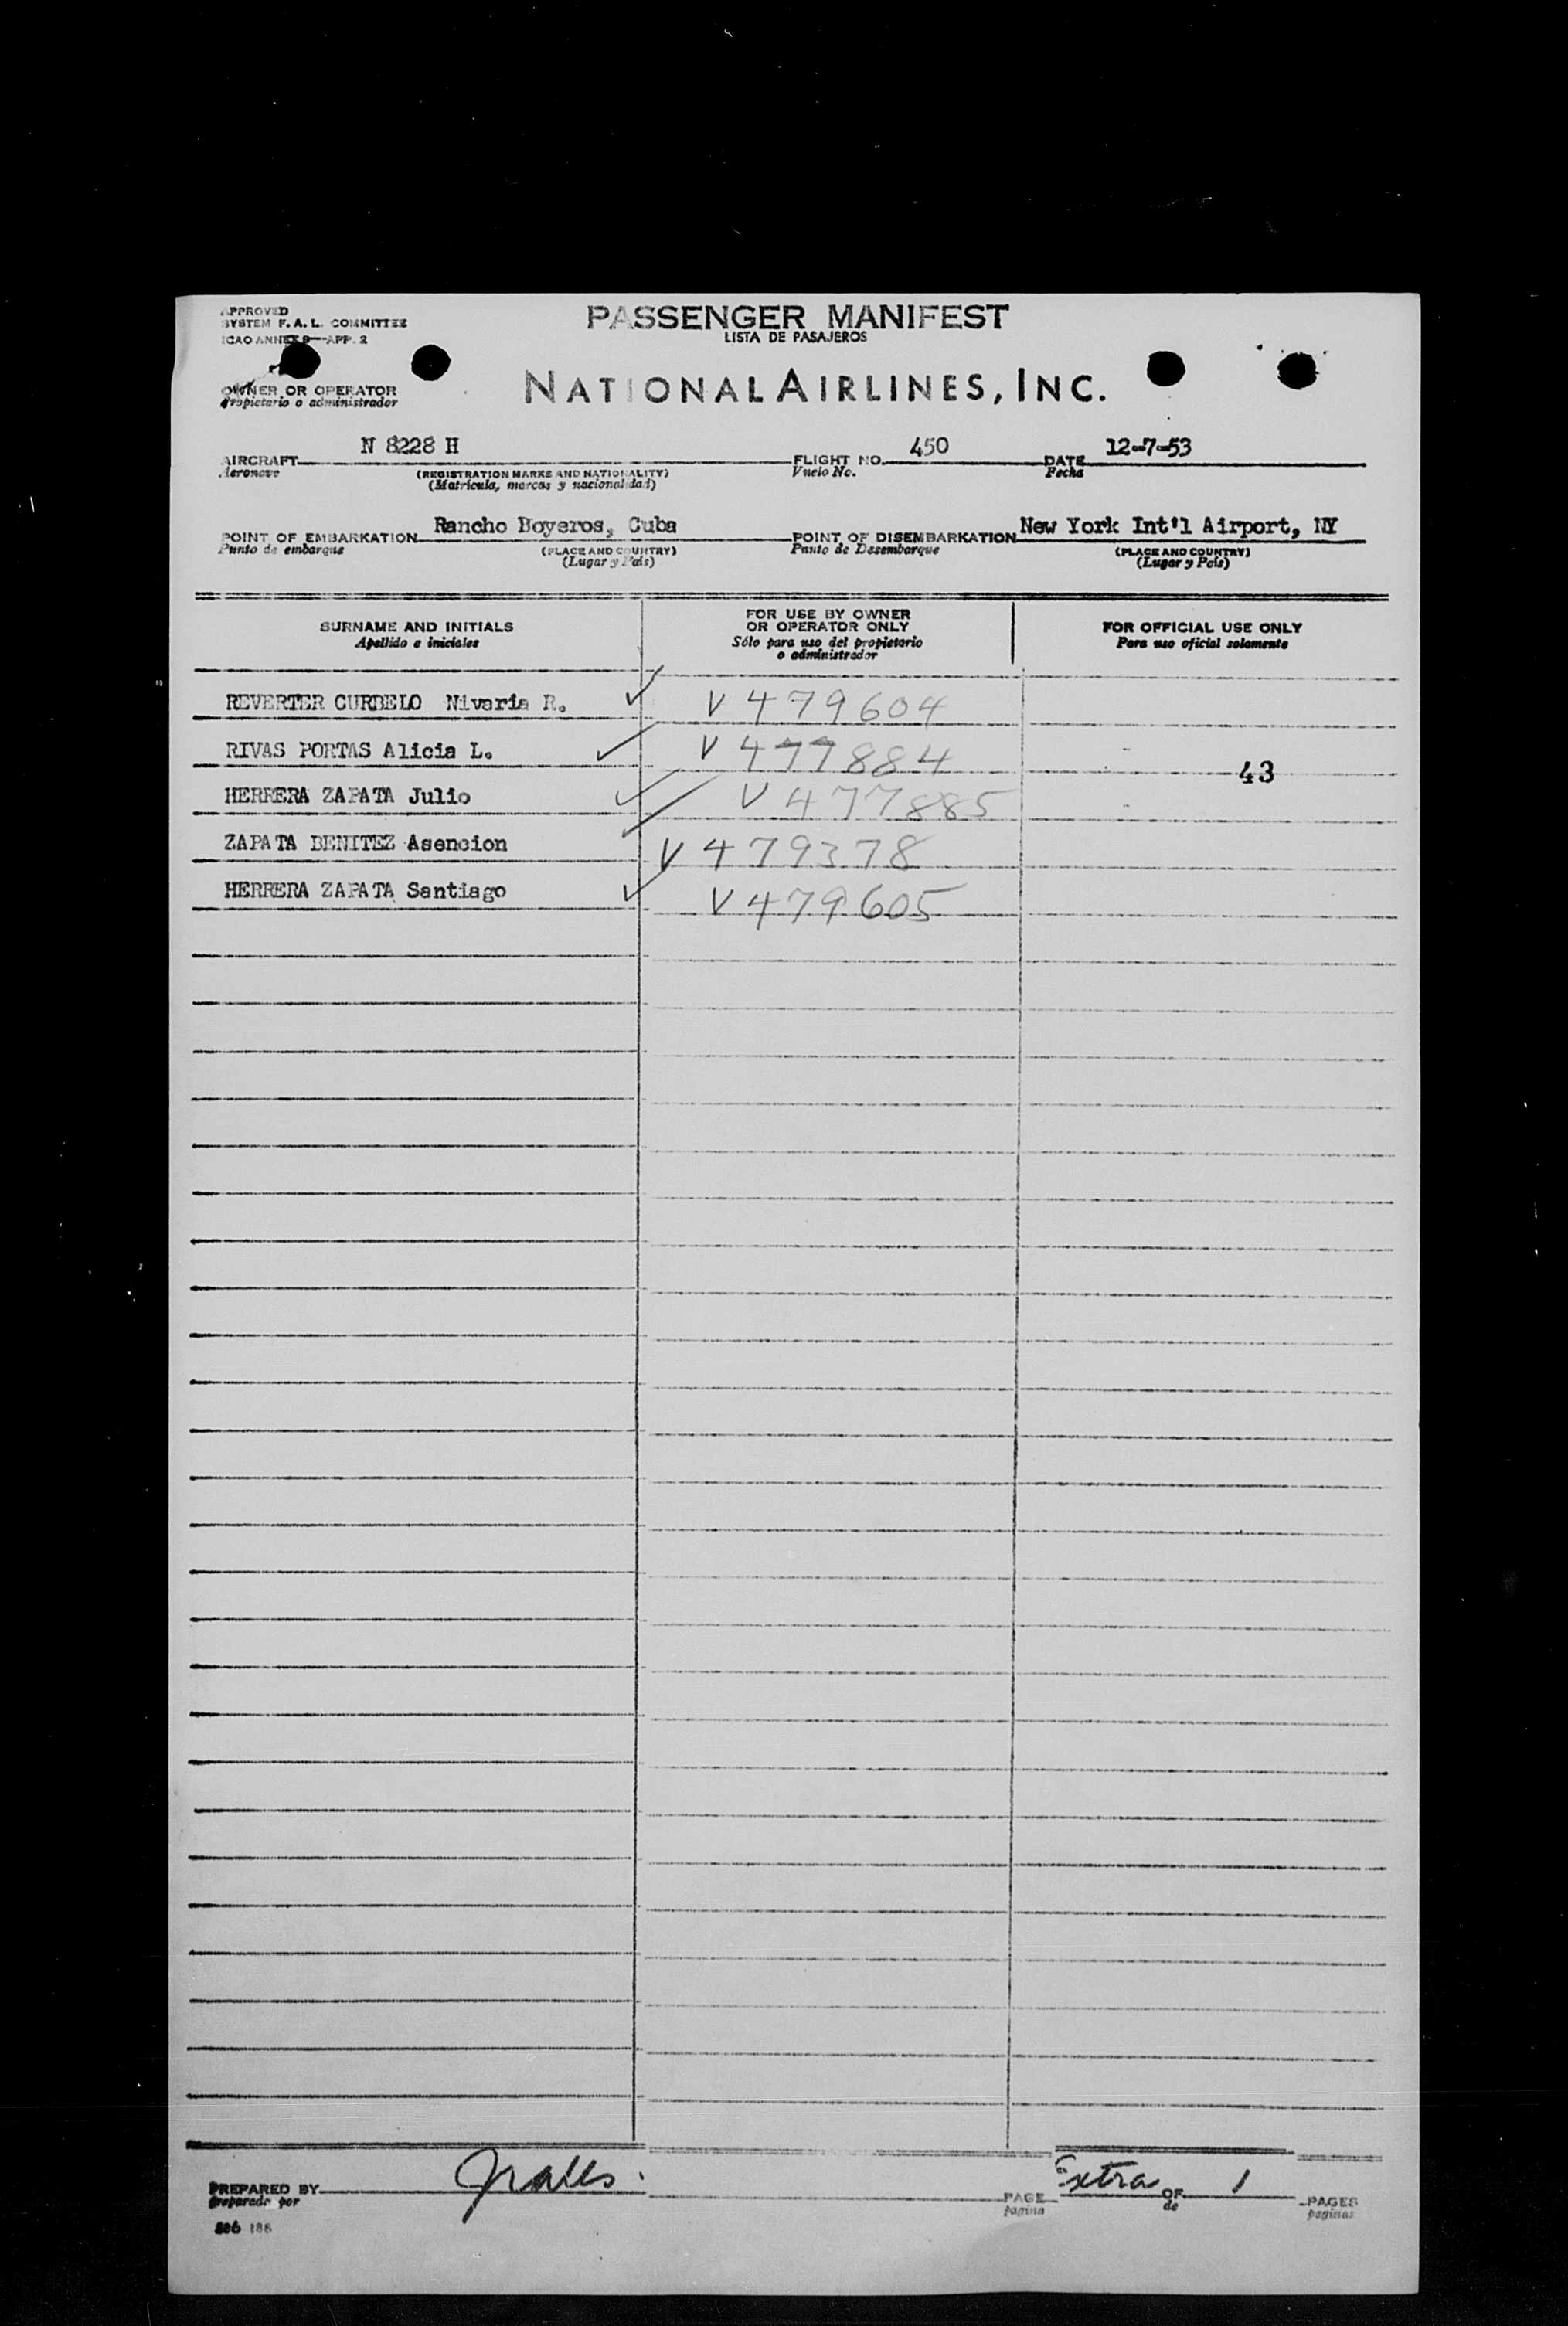 APPROVED
SYSTEM F. A. L. COMMITTEE
ICAO ANNEX 9—APP. 2
PASSENGER MANIFEST
LISTA DE PASAJEROS
OWNER OR OPERATOR
Propietario o administrador
NATIONAL AIRLINES, INC.
AIRCRAFT N 8228 H FLIGHT NO. 450 DATE 12-7-53
Aeronave (REGISTRATION MARKS AND NATIONALITY) Vuelo No. Fecha
(Matrícula, marcas y nacionalidad)
POINT OF EMBARKATION Rancho Boyeros, Cuba POINT OF DISEMBARKATION New York Int'l Airport, NY
Punto de embarque (PLACE AND COUNTRY) Punto de Desembarque (PLACE AND COUNTRY)
(Lugar y País) (Lugar y País)
SURNAME AND INITIALS
Apellido e iniciales
FOR USE BY OWNER
OR OPERATOR ONLY
Sólo para uso del propietario
o administrador
FOR OFFICIAL USE ONLY
Para uso oficial solamente
REVERTER CURBELO Nivaria R. ✓ V 479604
RIVAS PORTAS Alicia L. ✓ V 477884
43
HERRERA ZAPATA Julio ✓ V 477885
ZAPATA BENITEZ Asencion ✓ V 479378
HERRERA ZAPATA Santiago ✓ V 479605
PREPARED BY PAGE Extra OF 1 PAGES
Preparado por pagina de paginas